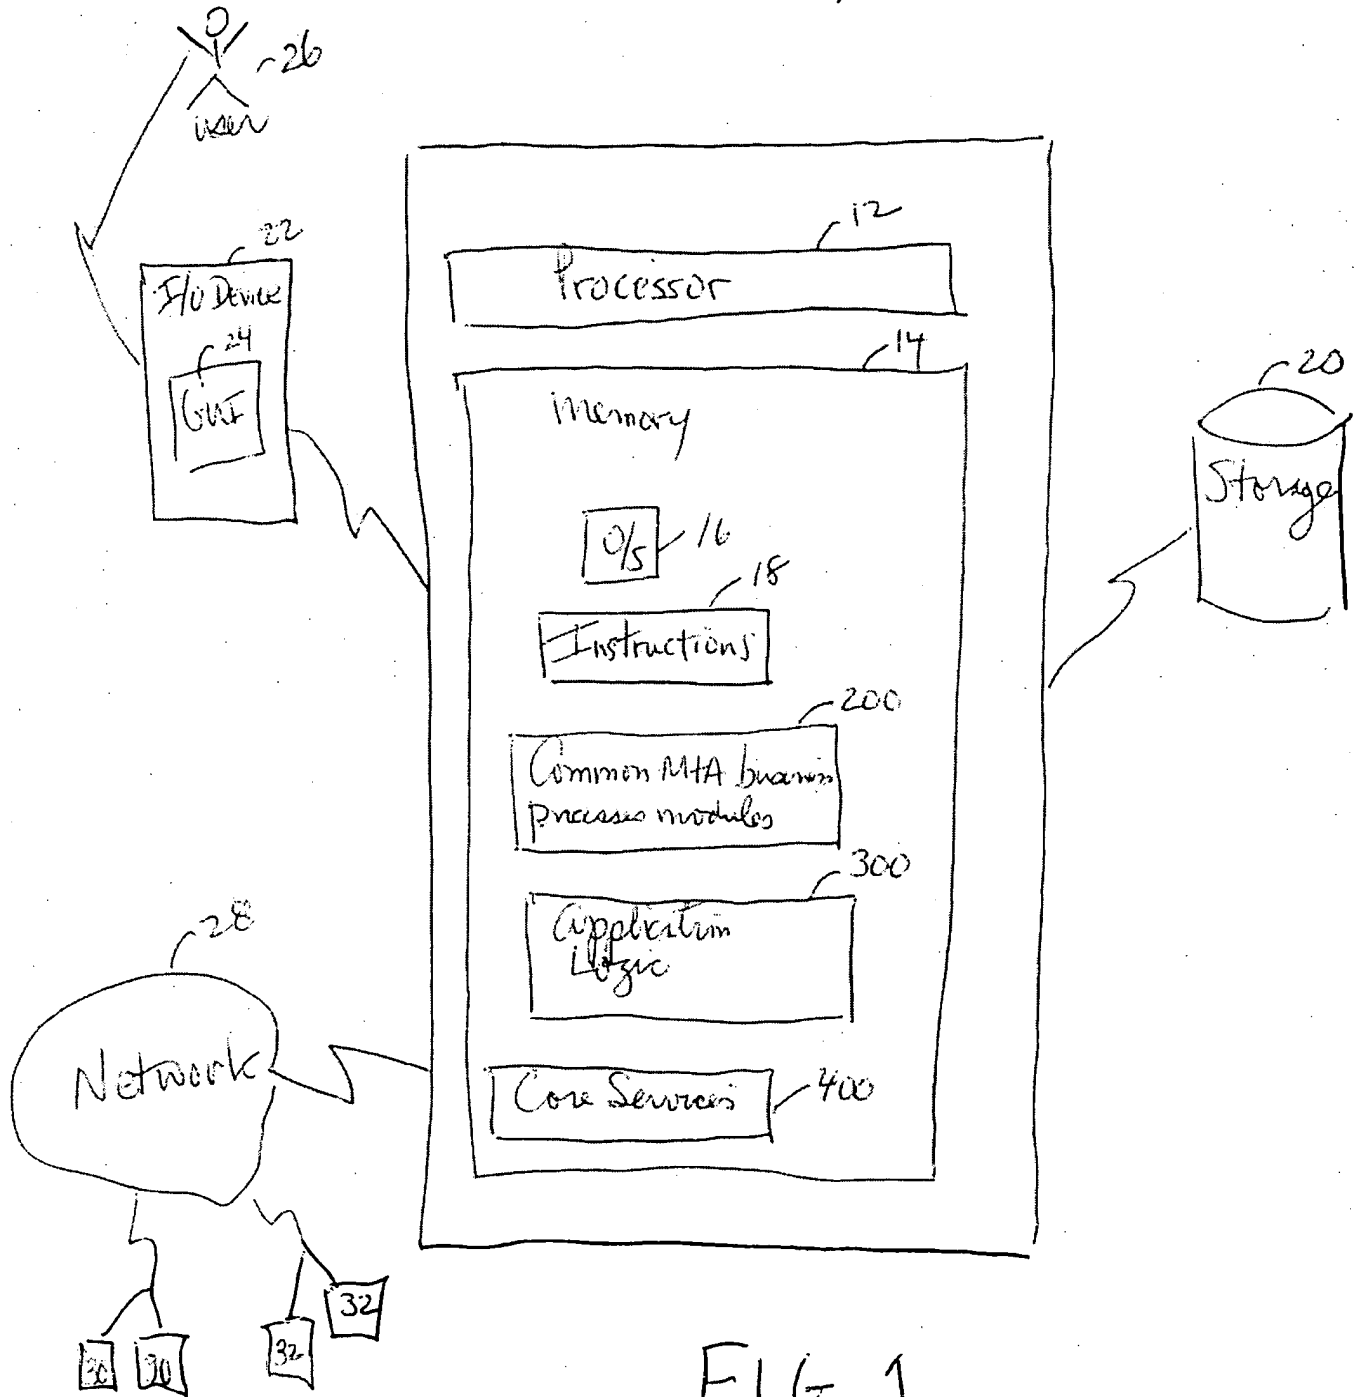 26
user
22
I/O Device
24
GUI
12
Processor
14
Memory
O/S
16
18
Instructions
20
Storage
200
Common M+A business
processes modules
300
Application
Logic
Core Services
400
28
Network
30
30
32
32
FIG. 1